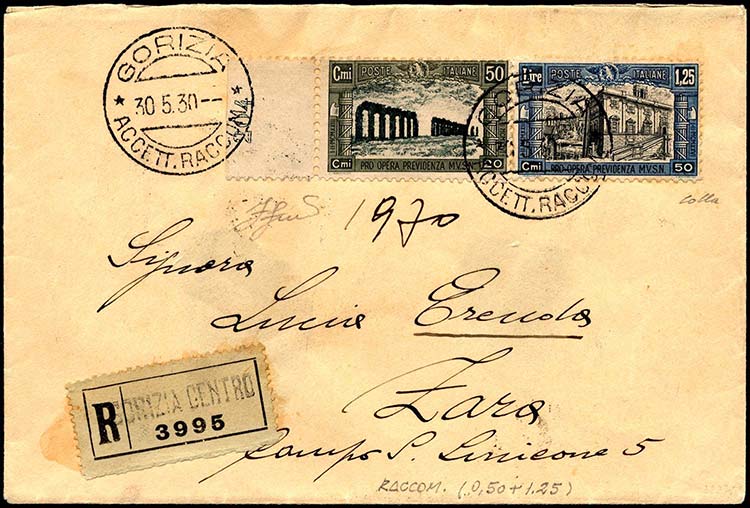 GORIZIA
30 5.30--
* ACCETT. RACCOM. *
Cmi POSTE ITALIANE 50
Cmi PRO OPERA PREVIDENZA M.V.S.N. 20
Lire POSTE ITALIANE 1,25
Cmi PRO OPERA PREVIDENZA M.V.S.N. 50
GORIZIA
ACCETT. RACCOM
colla
1970
Signora
Lucia
Zara
Campo S. Simeone 5
R GORIZIA CENTRO
3995
RACCOM. (0,50+1.25)